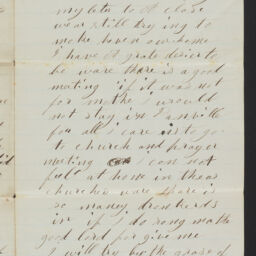 my leter to A close
wear still try ing to
mathe have owr home
I have A grate desier to
be ware thare is a good
meating if it was not
for mothe I wrould
not stay in
for all i care is to go
to church and prayer
meating i can not
feel at home in theas
churches ware thare is
so maney dronkirds
in if i do rong mathe
good lord for give me
I will try by the grase of